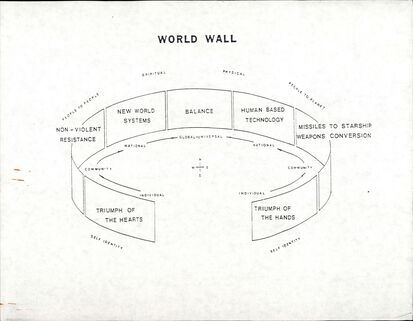 WORLD WALL
SPIRITUAL
PHYSICAL
PEOPLE TO PEOPLE
PEOPLE TO PLANET
NON-VIOLENT
RESISTANCE
NEW WORLD
SYSTEMS
BALANCE
HUMAN BASED
TECHNOLOGY
MISSILES TO STARSHIP
WEAPONS CONVERSION
NATIONAL
GLOBAL/UNIVERSAL
NATIONAL
COMMUNITY
COMMUNITY
INDIVIDUAL
INDIVIDUAL
TRIUMPH OF
THE HEARTS
TRIUMPH OF
THE HANDS
SELF IDENTITY
SELF IDENTITY